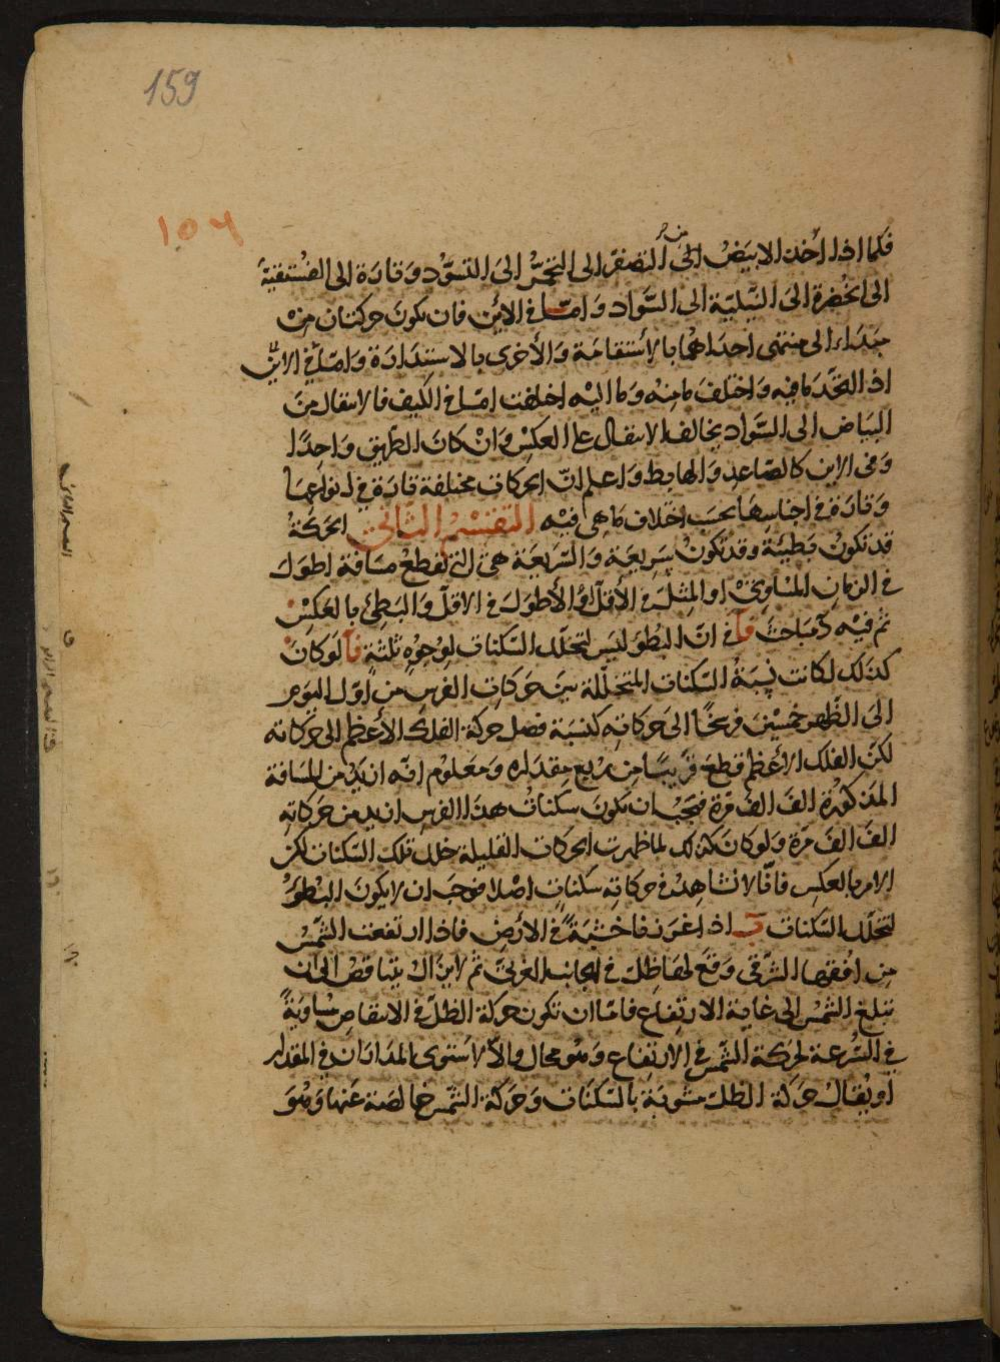 159
١٥٦
فكما اذا اخذ الابيض الى التصفر الى التحمر الى التسود وتارة الى الفستقية
الى الخضرة الى النيلية الى السواد واما في الاين فان يكون حركتان من
مبداء الى منتهى احداهما بالاستقامة والأخرى بالاستدارة واما في الاين
اذ اتحد ما فيه واختلف ما منه وما اليه اختلفت اما في الكيف فالانتقال من
البياض الى السواد يخالف الانتقال على العكس وان كان الطريق واحدا
وفى الاين كالصاعد والهابط واعلم ان الحركات مختلفة تارة في انواعها
وتارة في اجناسها بحسب اختلاف ما هي فيه التقسيم الثاني الحركة
قد تكون بطيئة وقد تكون سريعة والسريعة هي التي تقطع مسافة اطول
في الزمان المساوي او المثل في الأقل او الأطول في الاقل والبطئ بالعكس
ثم فيه مباحث آ في ان البطؤ ليس لتخلل السكنات لوجوه ثلثة آ لو كان
كذلك لكانت نسبة السكنات المتخللة بين حركات الفرس من اول اليوم
الى الظهر خمسين فرسخا الى حركاته كنسبة فضل حركة الفلك الأعظم الى حركاته
لكن الفلك الأعظم قطع قريبا من ربع مقداره ومعلوم انه ازيد من المسافة
المذكورة الف الف مرة فيجب ان تكون سكنات هذا الفرس ازيد من حركاته
الف الف مرة ولو كان كذلك لما ظهرت الحركات القليلة خلال تلك السكنات لكن
الامر بالعكس فانا لا نشاهد في حركاته سكنات اصلا فوجب ان لا يكون البطؤ
لتخلل السكنات ب اذا غرزنا خشبة في الأرض فاذا ارتفعت الشمس
من افقها الشرقى وقع لها ظل في الجانب الغربي ثم لا يزال يتناقص الى ان
تبلغ الشمس الى غاية الارتفاع فاما ان تكون حركة الظل في الانتقاص مساوية
في السرعة لحركة الشمس في الارتفاع وهو محال والا لاستوى المداران في المقدار
او يقال حركة الظل مشوبة بالسكنات وحركة الشمس خالصة عنها وهو